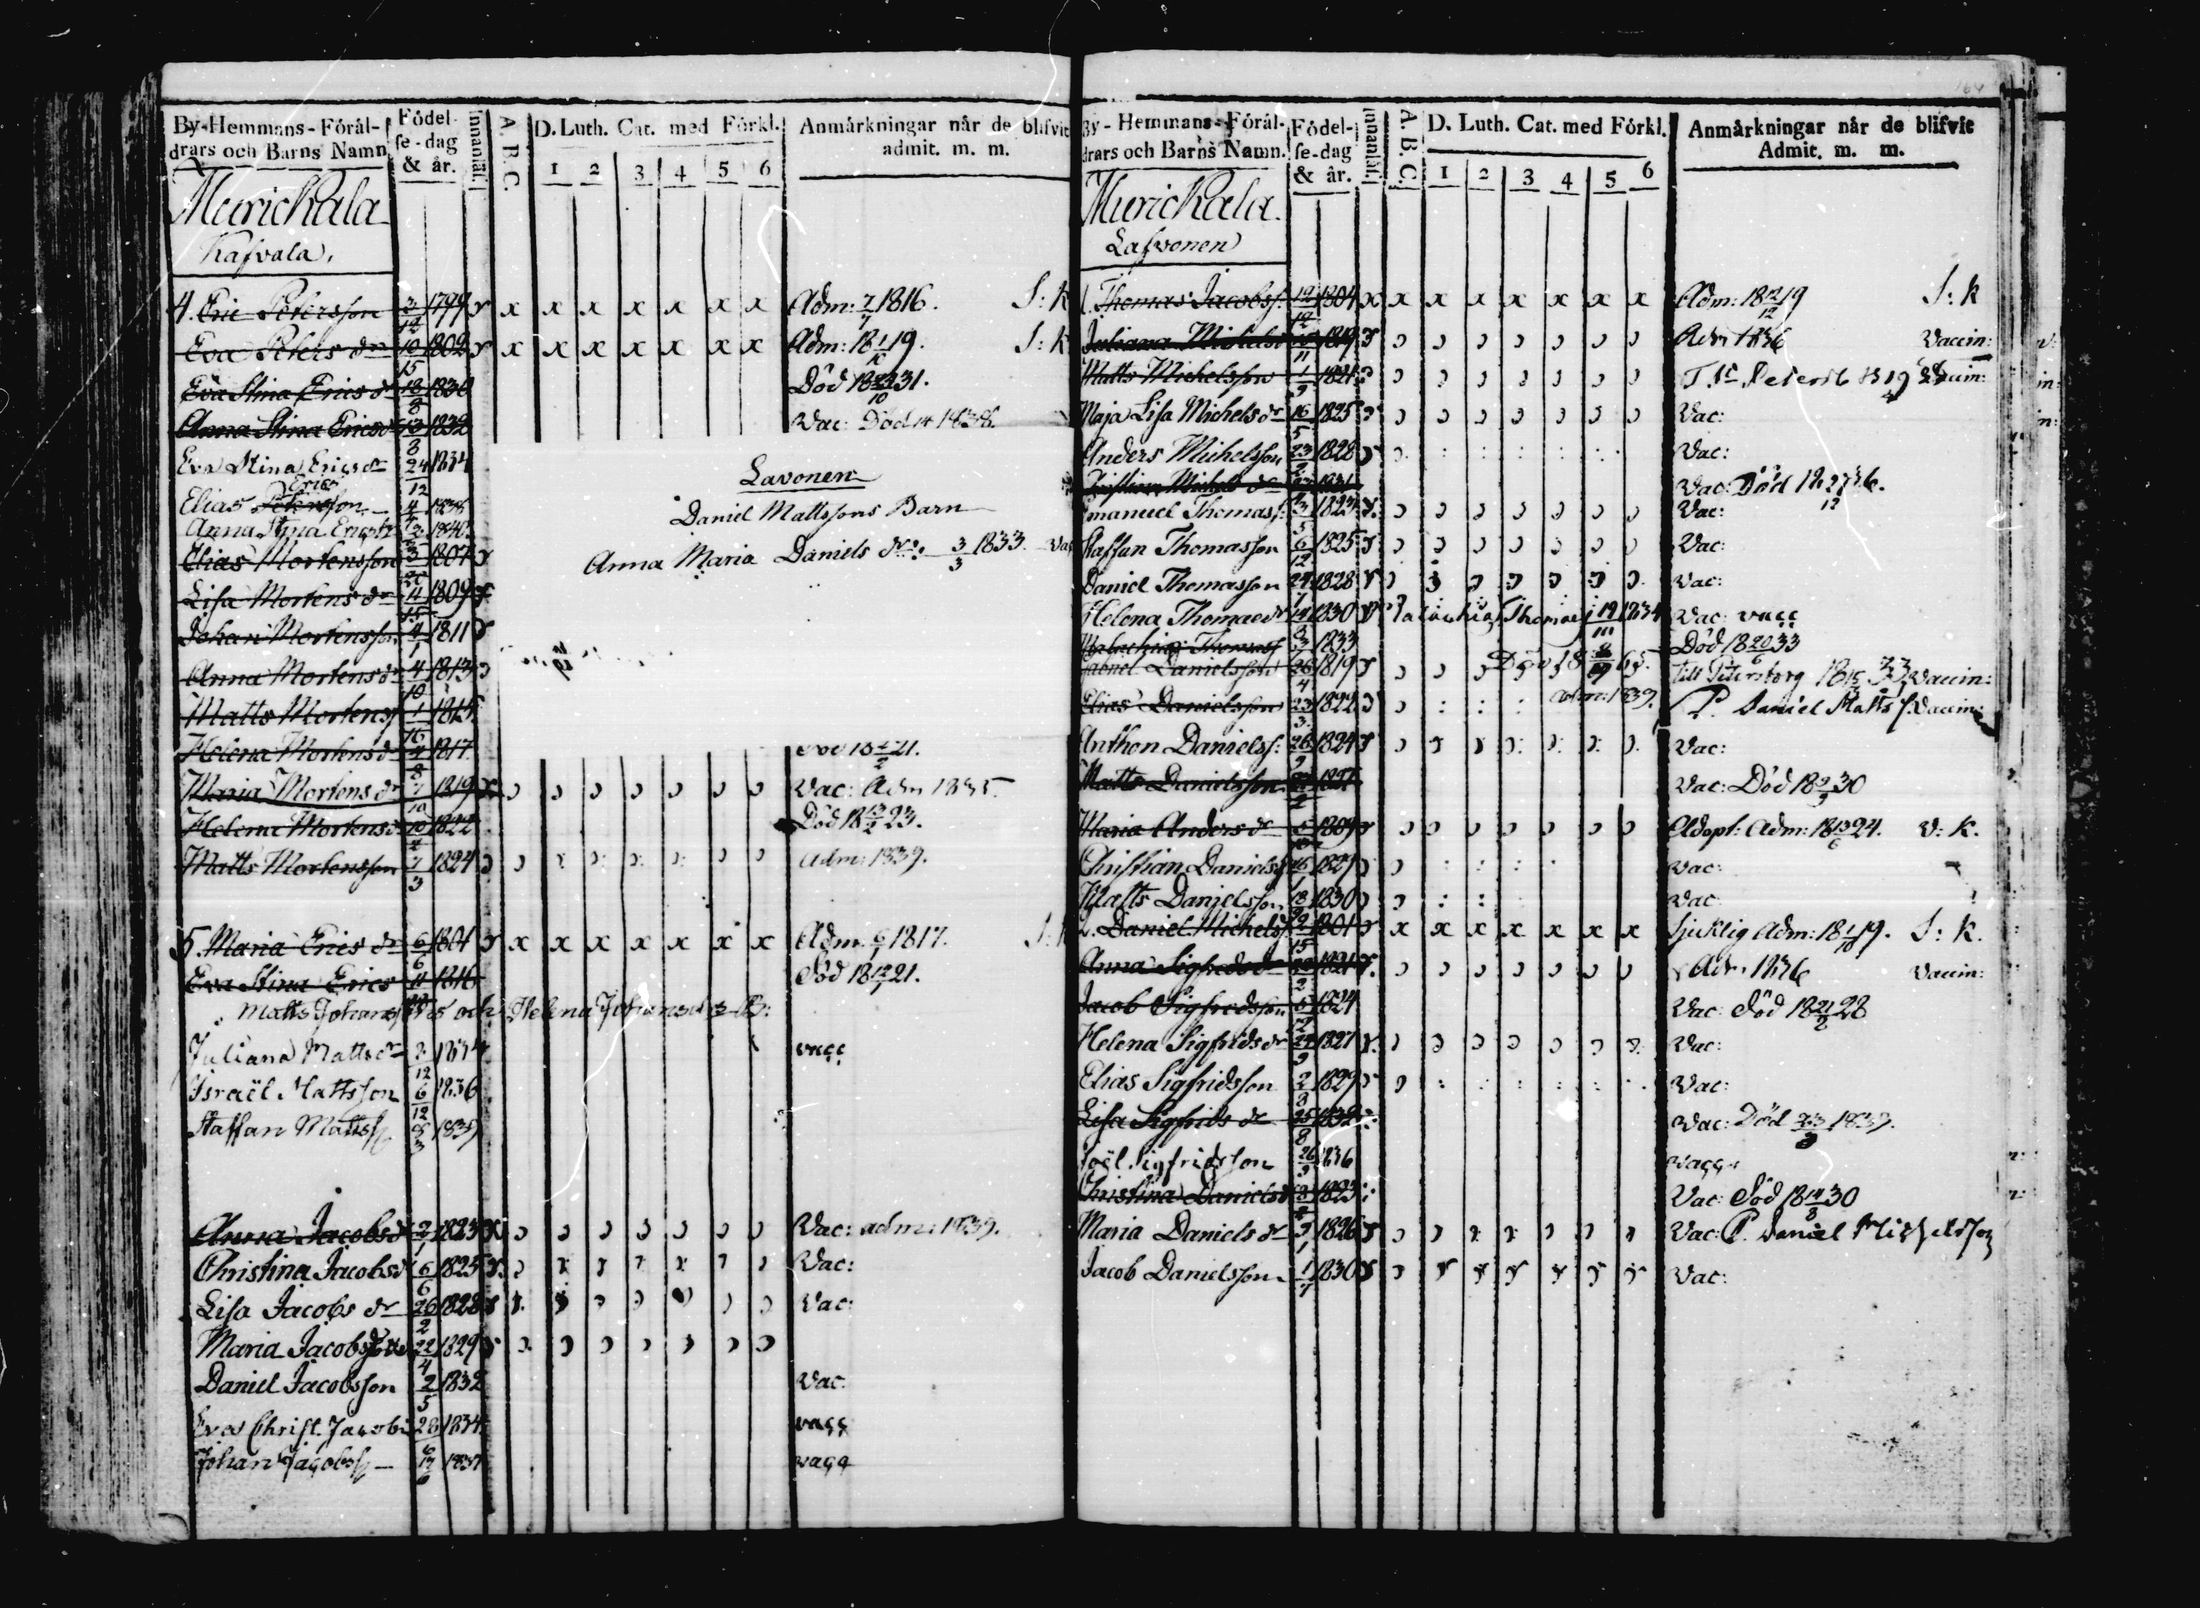 By-Hemmans-Förål- Födel- Innanläf: A. B. C. D. Luth. Cat. med Förkl. Anmårkningar når de blifvit
drars och Barns Namn se-dag & år. 1 2 3 4 5 6 admit. m. m.
Murichala
Kafvala.
4. Eric Petersson 3/12 1799 x x x x x x x Adm: 7/7 1816. S: k
Eva Peters dr 10/15 1802 x x x x x x x Adm: 18 1/10 19. S: k
Eva Stina Erics dr 18/8 1830 Död 18 22/10 31.
Anna Stina Erics dr 13/8 1832 Vac: Död 1838.
Eva Stina Erics dr 24/12 1834
Elias Petersson Erics 4 1838
Anna Stina 1840
Lavonen
Daniel Mattssons Barn
Anna Maria Daniels dr: 3/3 1833.
Elias Mortensson 1807
Lisa Mortens dr 11/15 1809
Johan Mortensson 4/1 1811
Anna Mortens dr 4/10 1813
Matts Mortens 1 1815
Helena Mortens dr 4/8 1817 18 21.
Maria Mortens dr 7/10 1819 Vac: Adm 1835
Helena Mortens 10 1822 Död 18 13/2 23.
Matts Mortensson 7/3 1824 Adm: 1839.
5. Maria Erics dr 6/6 1801 x x x x x x x Adm: 1817.
Eva Stina Erics 4 1816 Död 18 12/7 21.
Matts Johans och Helena Johans B:
Juliana Matts dr 2/12 1834 vacc
Israël Mattsson 6/12 1836
Staffan Matts 8/3 1839
Anna Jacobs dr 2/1 1823 Vac: adm: 1839.
Christina Jacobs dr 6/6 1825 Vac:
Lisa Jacobs dr 26/2 1828 Vac:
Maria Jacobs 22/4 1829
Daniel Jacobsson 2/5 1832 Vac.
Eva Christ. Jacobs 28/6 1834 vacc
Johan Jacobs 1837 vacc
By-Hemmans-Förål- Födel- Innanläf: A. B. C. D. Luth. Cat. med Förkl. Anmårkningar når de blifvit
drars och Barns Namn. se-dag & år. 1 2 3 4 5 6 Admit. m. m.
Murichala.
Lafvonen
1. Thomas Jacobs: 19/12 1804 x x x x x x x x Adm: 18 12/12 19 S: k
Juliana Michels 1819 Adm 1836 Vaccin:
Matts Michelsson 1/9 1821 Petersb Vaccin:
Maja Lisa Michels dr 16/5 1825 Vac:
Anders Michelsson 23/2 1828 Vac:
Christina Michels dr 1831 Vac: Död 18 27/12 36.
Emanuel Thomas: 3/5 1823 Vac:
Staffan Thomasson 6/12 1825 Vac:
Daniel Thomasson 24/7 1828 Vac:
Helena Thomae dr 1830 Malachias Thomae 19 1834 Vac: vacc
Malachias Thomas 1833 Död 18 20/6 33
Gabriel Danielsson 26/4 1819 Död 18 65. till Petersborg 18 33 Vaccin:
Elias Danielsson 23/3 1822 adm: 1839. P. Daniel Matts Vaccin:
Anthon Daniels: 26/9 1824 Vac:
Matts Danielsson 1827 Vac: Död 18 2/3 30
Maria Anders dr 1809 Adopt: Adm: 18 13/6 24. v: k.
Christian Daniels 16/1 1829 Vac:
Matts Danielsson 18 1830 Vac.
2. Daniel Michels 9/15 1801 x x x x x x x Sjuklig Adm: 18 1/10 19. S: k.
Anna Sigfrids dr 1821 Adm 1836 Vaccin:
Jacob Sigfridsson 6 1824 Vac: Död 18 21/2 28
Helena Sigfrids dr 24/9 1827 Vac:
Elias Sigfridsson 2/8 1829 Vac:
Lisa Sigfrids dr 25/8 1832 Vac: Död 23/3 1839.
Joël Sigfridsson 26/3 1836 vacc
Christina Daniels dr 1823 Vac: Död 18 14/8 30
Maria Daniels dr 3/1 1826 Vac: P. Daniel Michelsson
Jacob Danielsson 1/7 1830 Vac: